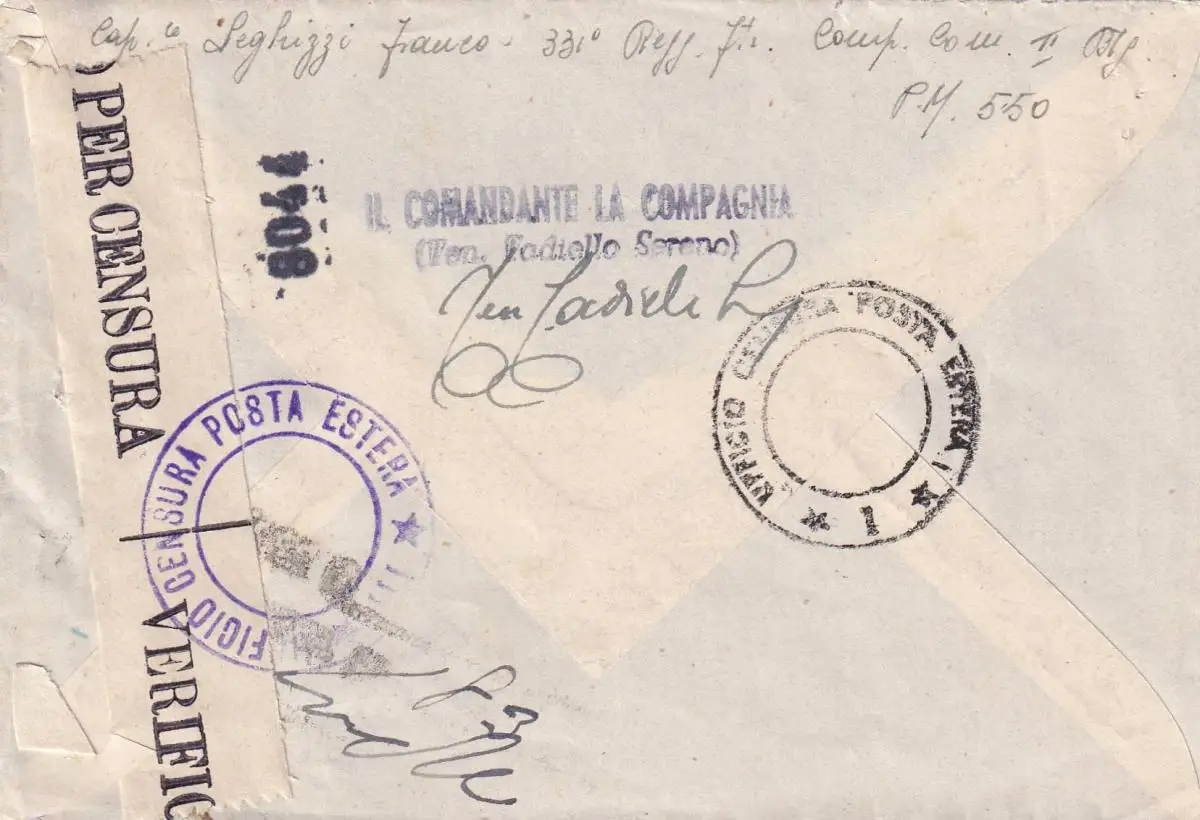 Cap.le Seghizzi Franco - 331° Regg. Ftr. Comp. Com. II Btg
P.M. 550
80744
IL COMANDANTE LA COMPAGNIA
(Ten. Fadiello Sereno)
Ten
UFFICIO CENSURA POSTA ESTERA
★ 1 ★
) PER CENSURA
VERIFIC
FICIO CENSURA POSTA ESTERA ★